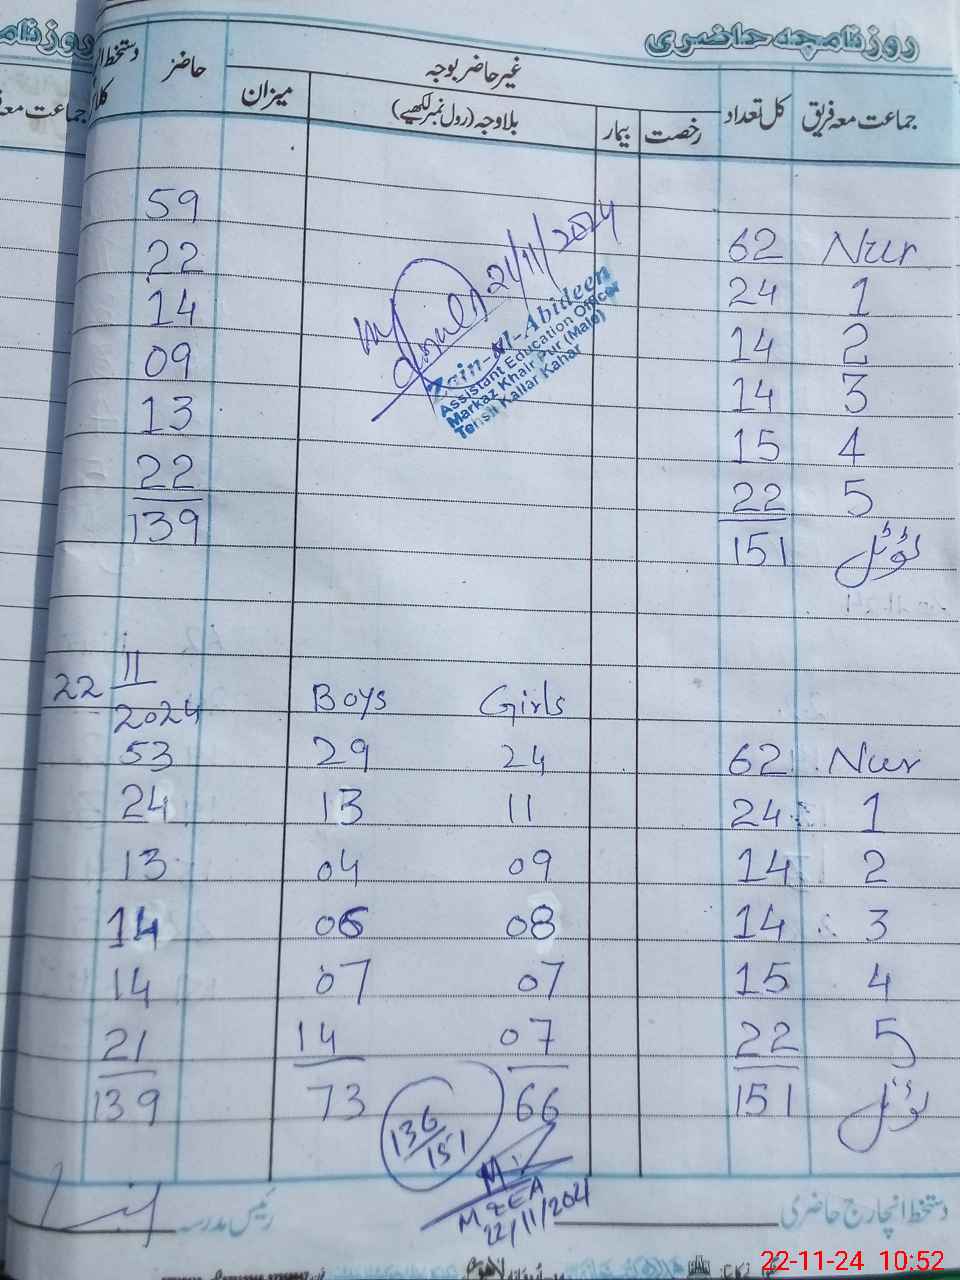 روزنامچہ حاضری
جماعت معہ فریق کل تعداد غیر حاضر بوجہ حاضر
رخصت بیمار بلاوجہ (رول نمبر لکھیے) میزان
59
Nur 62 22
1 24 14
2 14 09
3 14 13
4 15 22
5 22 139
ٹوٹل 151
21/11/2024
Zain-ul-Abideen
Assistant Education Officer
Markaz Khair Pur (Male)
Tehsil Kallar Kahar
22 11 2024
Boys Girls
53 29 24 62 Nur
24 13 11 24 1
13 04 09 14 2
14 06 08 14 3
14 07 07 15 4
21 14 07 22 5
139 73 66 151 ٹوٹل
136/151
MEEA
22/11/2024
دستخط انچارج حاضری رئیس مدرسہ
22-11-24 10:52